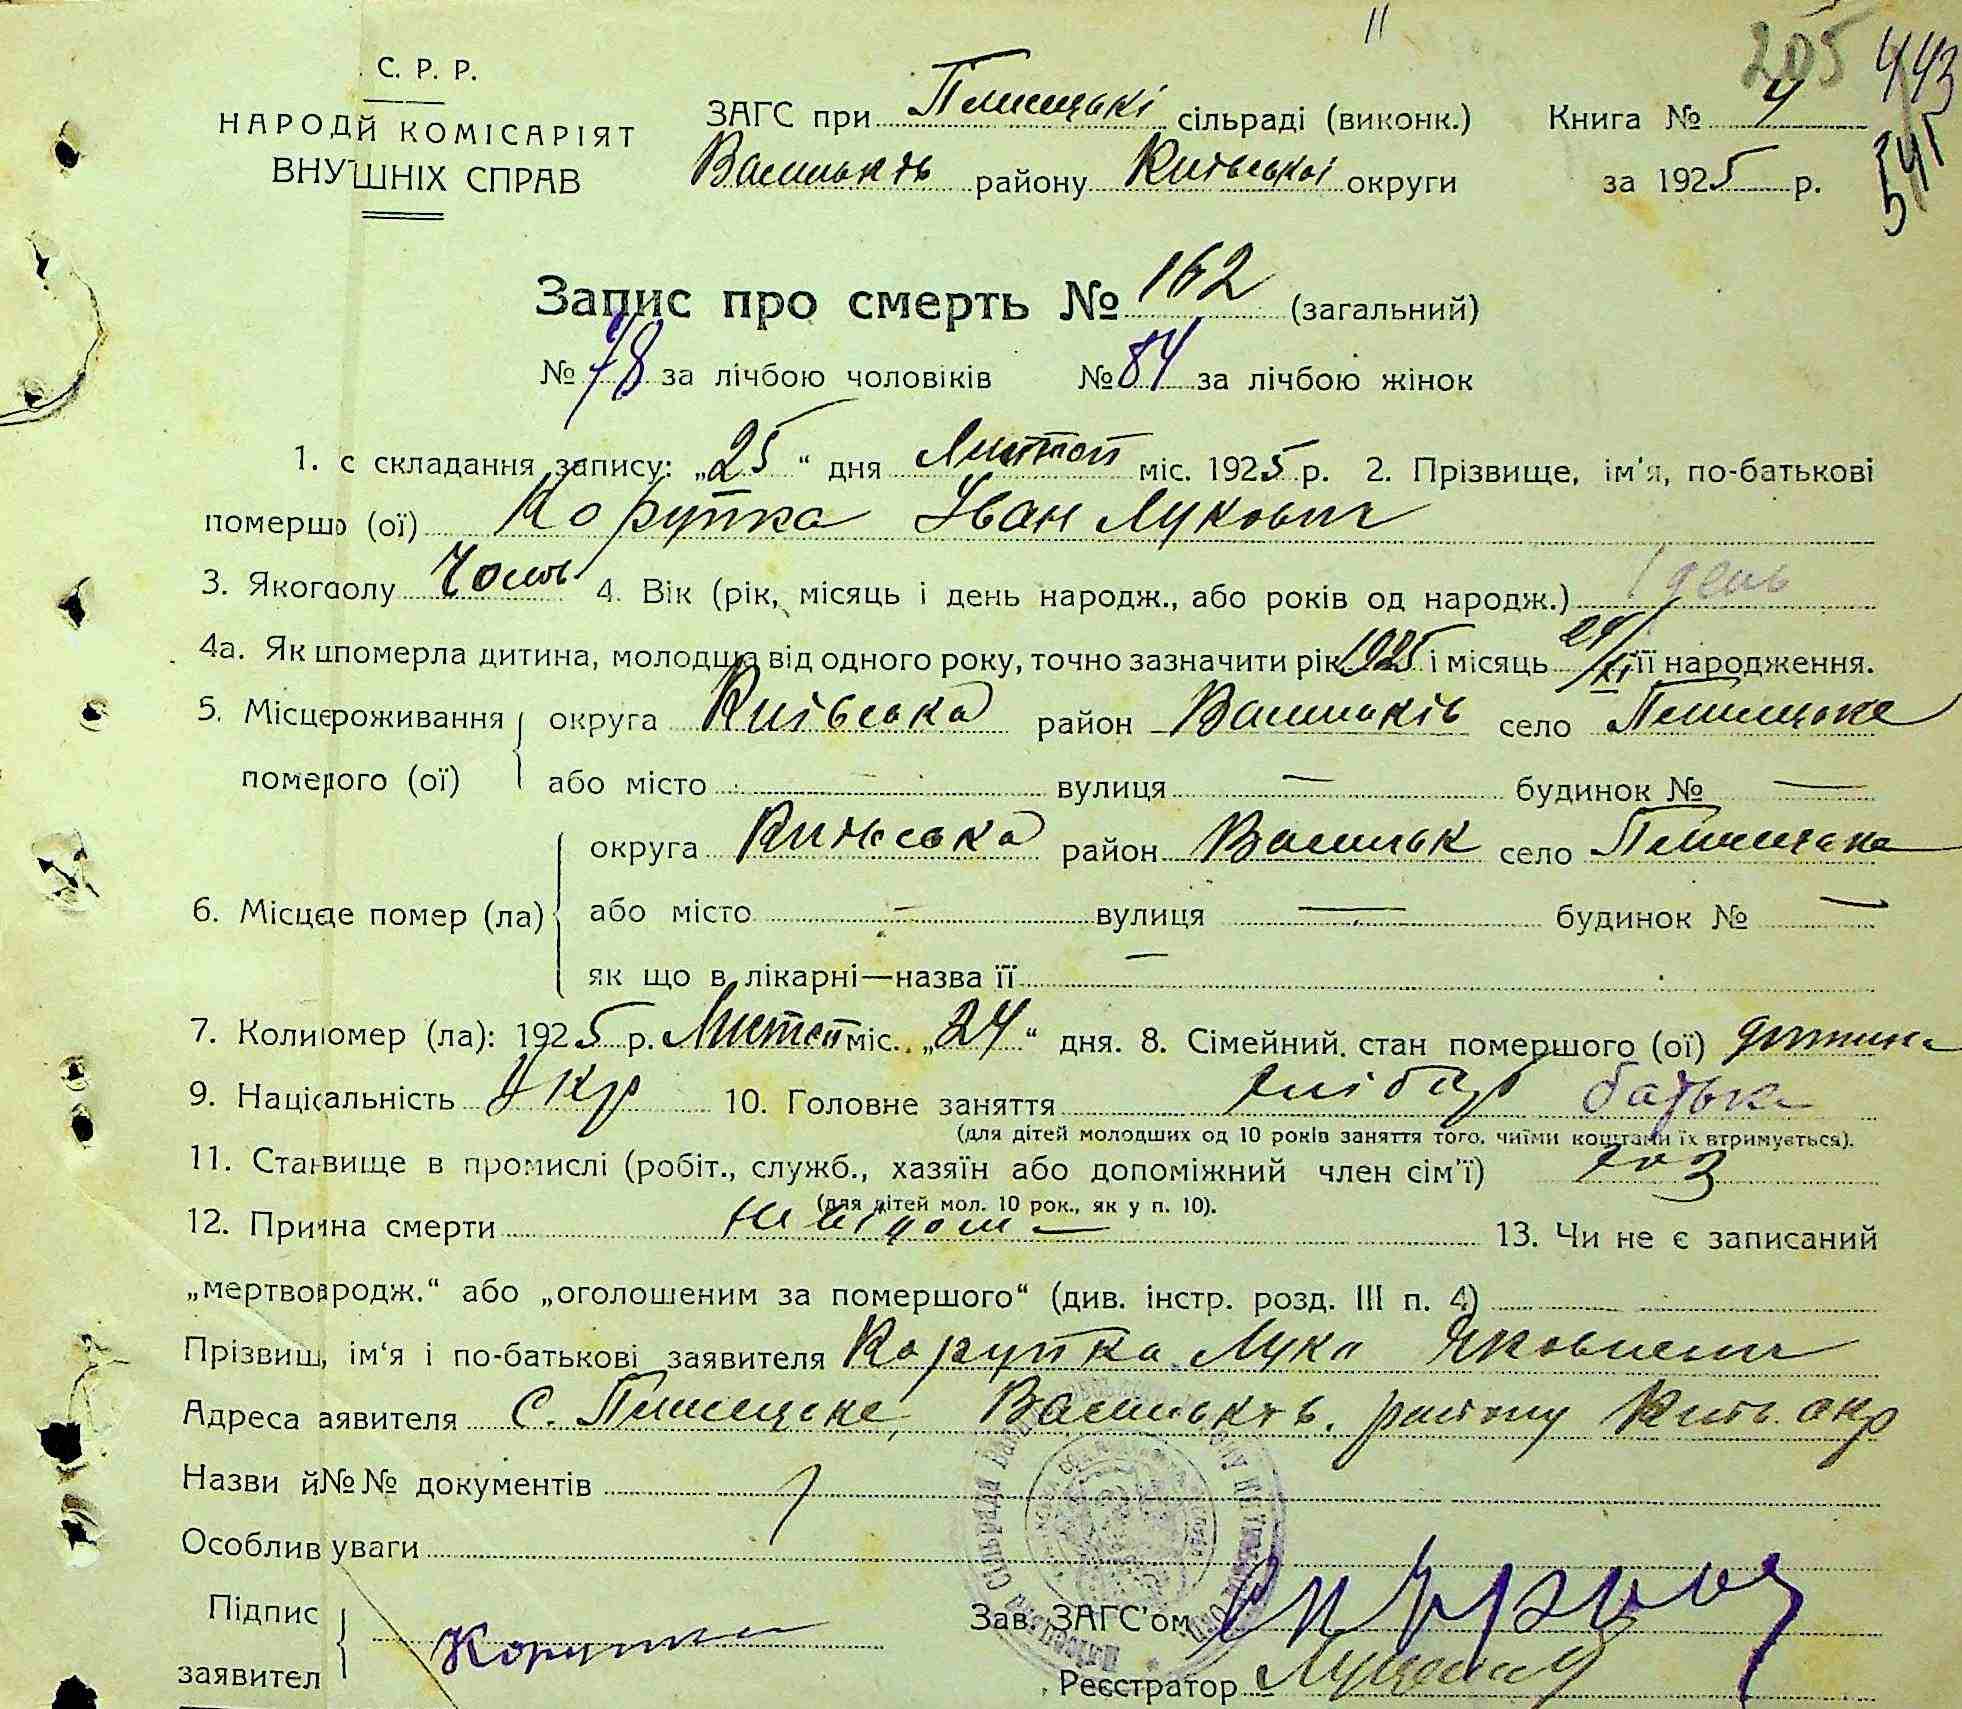 11
205 443
545
С. Р. Р.
НАРОДЙ КОМІСАРІЯТ
ВНУШНІХ СПРАВ
ЗАГС при Плисецькі сільраді (виконк.) Книга № 4
Васильків району Київської округи за 1925 р.
Запис про смерть № 162 (загальний)
№ 78 за лічбою чоловіків № 84 за лічбою жінок
1. с складання запису: „25“ дня Листоп міс. 1925 р. 2. Прізвище, ім'я, по-батькові
помершо (ої) Корупка Іван Лукович
3. Якогаолу Чолов 4. Вік (рік, місяць і день народж., або років од народж.) 1 день
4а. Як цпомерла дитина, молодша від одного року, точно зазначити рік 1925 і місяць 24/XI її народження.
5. Місцероживання округа Київська район Васильків село Плисецьке
померого (ої) або місто — вулиця — будинок № —
округа Київська район Васильк село Плисецька
6. Місцеде помер (ла) або місто — вулиця — будинок № —
як що в лікарні—назва її —
7. Колиюмер (ла): 1925 р. Листоп міс. „24“ дня. 8. Сімейний. стан помершого (ої) дитина
9. Націсальність Укр 10. Головне заняття хлібор батька
(для дітей молодших од 10 років заняття того, чиїми коштами їх втримується).
11. Станвище в промислі (робіт., служб., хазяїн або допоміжний член сім'ї) хоз
(для дітей мол. 10 рок., як у п. 10).
12. Прична смерти Невідом — 13. Чи не є записаний
„мертвовродж.“ або „оголошеним за помершого“ (див. інстр. розд. III п. 4)
Прізвищ, ім'я і по-батькові заявителя Корупка Лука Яковлевич
Адреса аявителя С. Плисецьке, Васильків. району Київ. окр
Назви й№№ документів
Особлив уваги
Підпис
заявител Корупка
Зав. ЗАГС'ом
Реєстратор